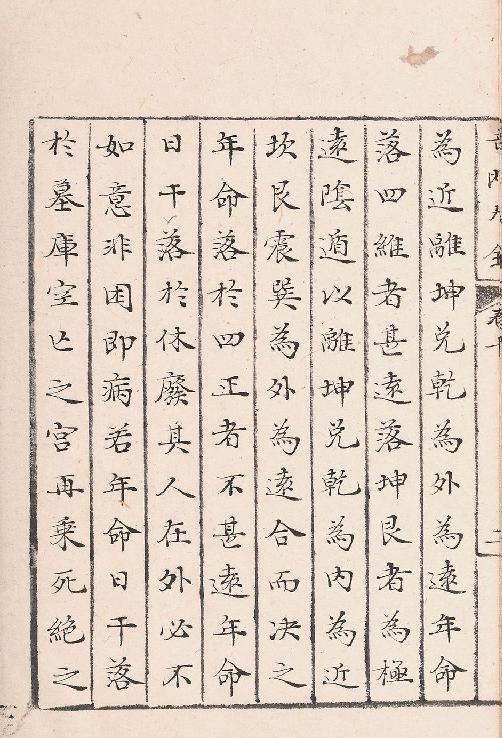 為近離坤兌乾為外為遠年命
落四維者甚遠落坤艮者為極
遠陰遁以離坤兌乾為內為近
坎艮震巽為外為遠合而决之
年命落於四正者不甚遠年命
日干落於休廢其人在外必不
如意非困即病若年命日干落
於墓庫空亡之宮再乘死絕之